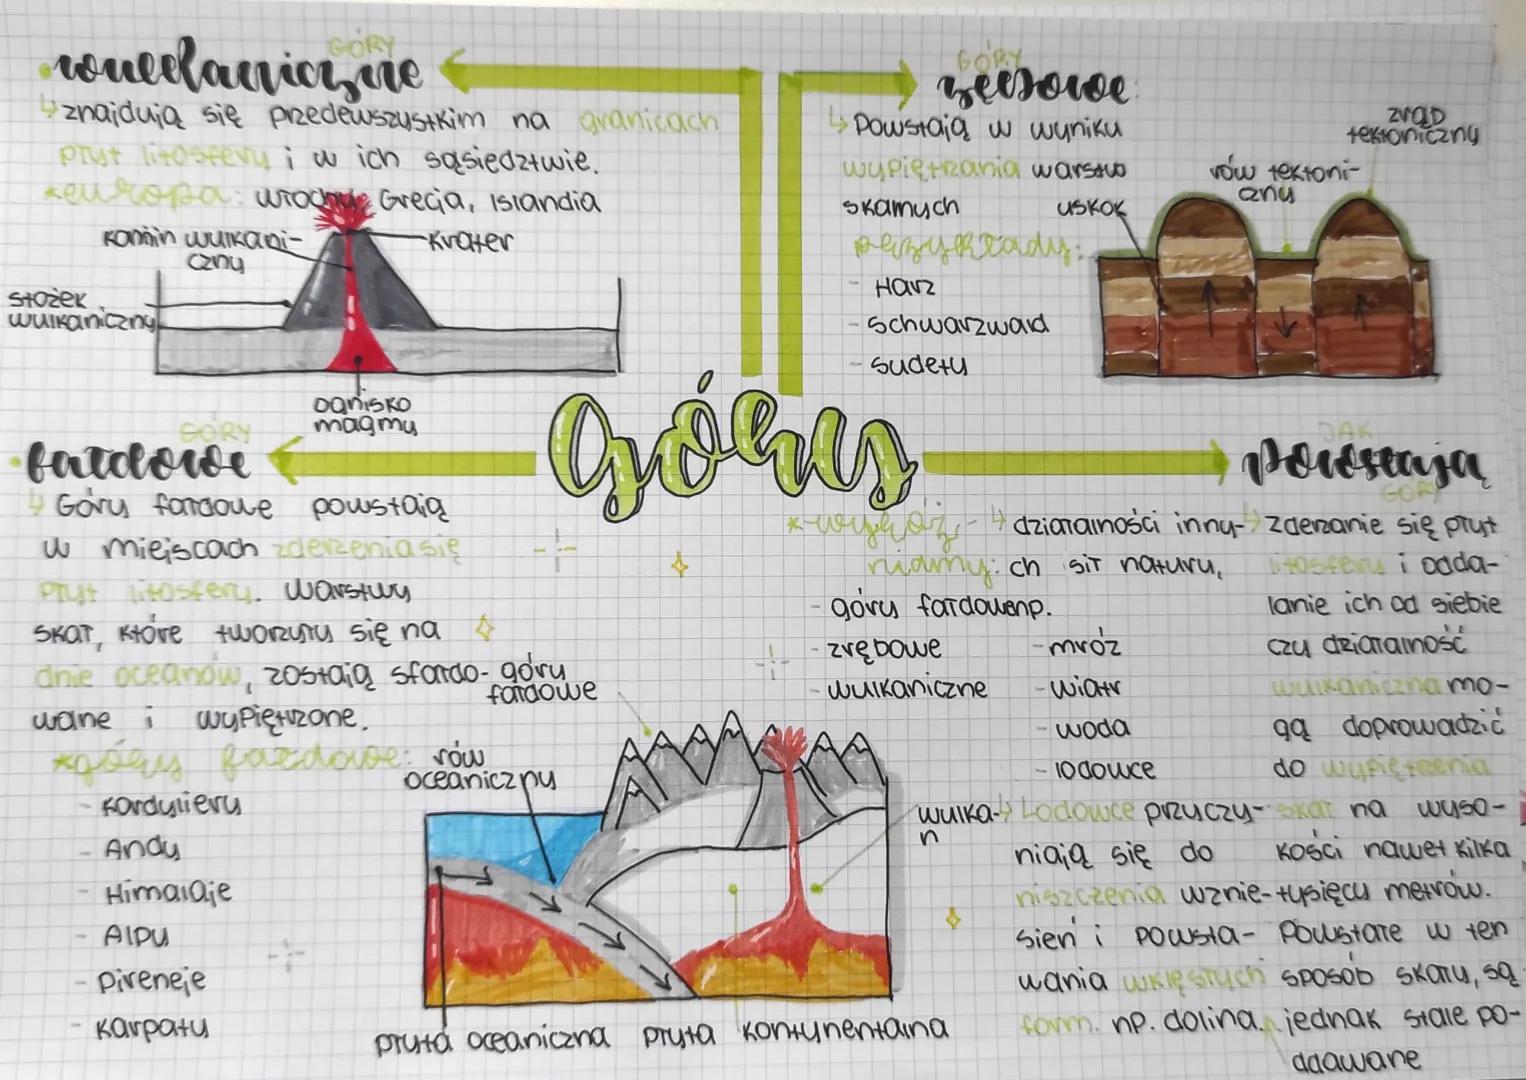 GÓRY
wulkaniczne
znajdują się przedewszystkim na granicach
płyt litosfery i w ich sąsiedztwie.
*europa: włochy, Grecja, Islandia
komin wulkani-
czny
krater
stożek
wulkaniczny
ognisko
magmy
GÓRY
zrębowe:
Powstają w wyniku
wypiętrzania warstw
skamych
przykłady:
- Harz
- Schwarzwald
- sudety
uskok
rów tektoni-
czny
zrąb
tektoniczny
góry
GÓRY
fałdowe
Góry fałdowe powstają
w miejscach zderzenia się
płyt litosfery. Warstwy
skał, które tworzyły się na
dnie oceanów, zostają sfałdo-
wane i wypiętrzone.
*góry fałdowe:
- Kordyliery
- Andy
- Himalaje
- Alpy
- Pireneje
- Karpaty
góry
fałdowe
rów
oceaniczny
wulka-
n
płyta oceaniczna
płyta kontynentalna
JAK
Powstają
GÓRY
*wyróż-
niamy:
- góry fałdowe
- zrębowe
- wulkaniczne
działalności inny-
ch sił natury,
np.
- mróz
- wiatr
- woda
- lodowce
Lodowce przyczy-
niają się do
niszczenia wznie-
sień i powsta-
wania wklęsłych
form. np. dolina.
Zderzanie się płyt
litosfery i odda-
lanie ich od siebie
czy działalność
wulkaniczna mo-
gą doprowadzić
do wypiętrzenia
skał na wyso-
kości nawet kilka
tysięcy metrów.
Powstałe w ten
sposób skały, są
jednak stale po-
ddawane